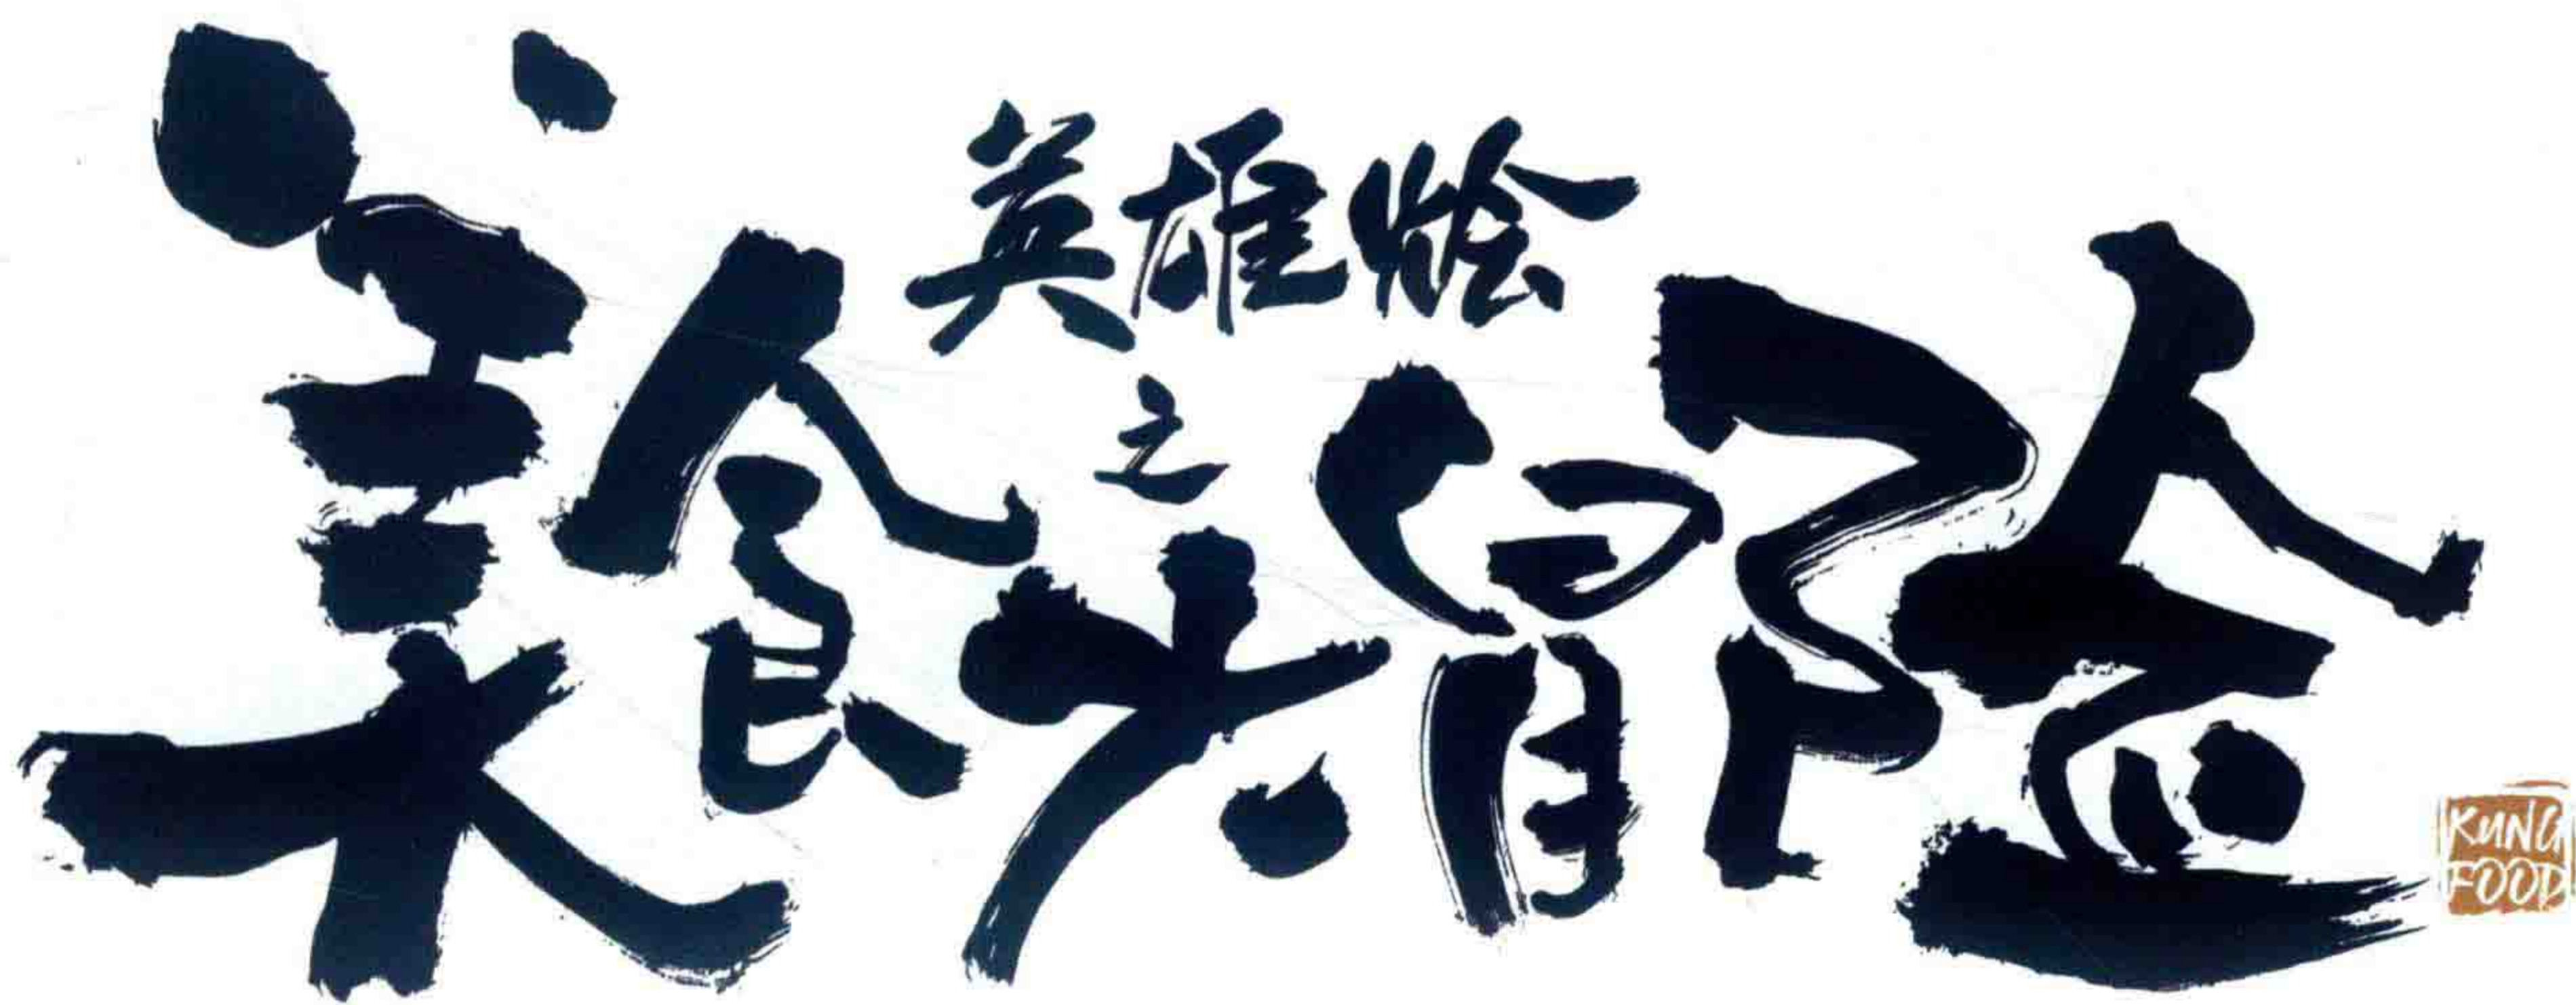 英雄烩
之
美食大冒险
KUNG
FOOD